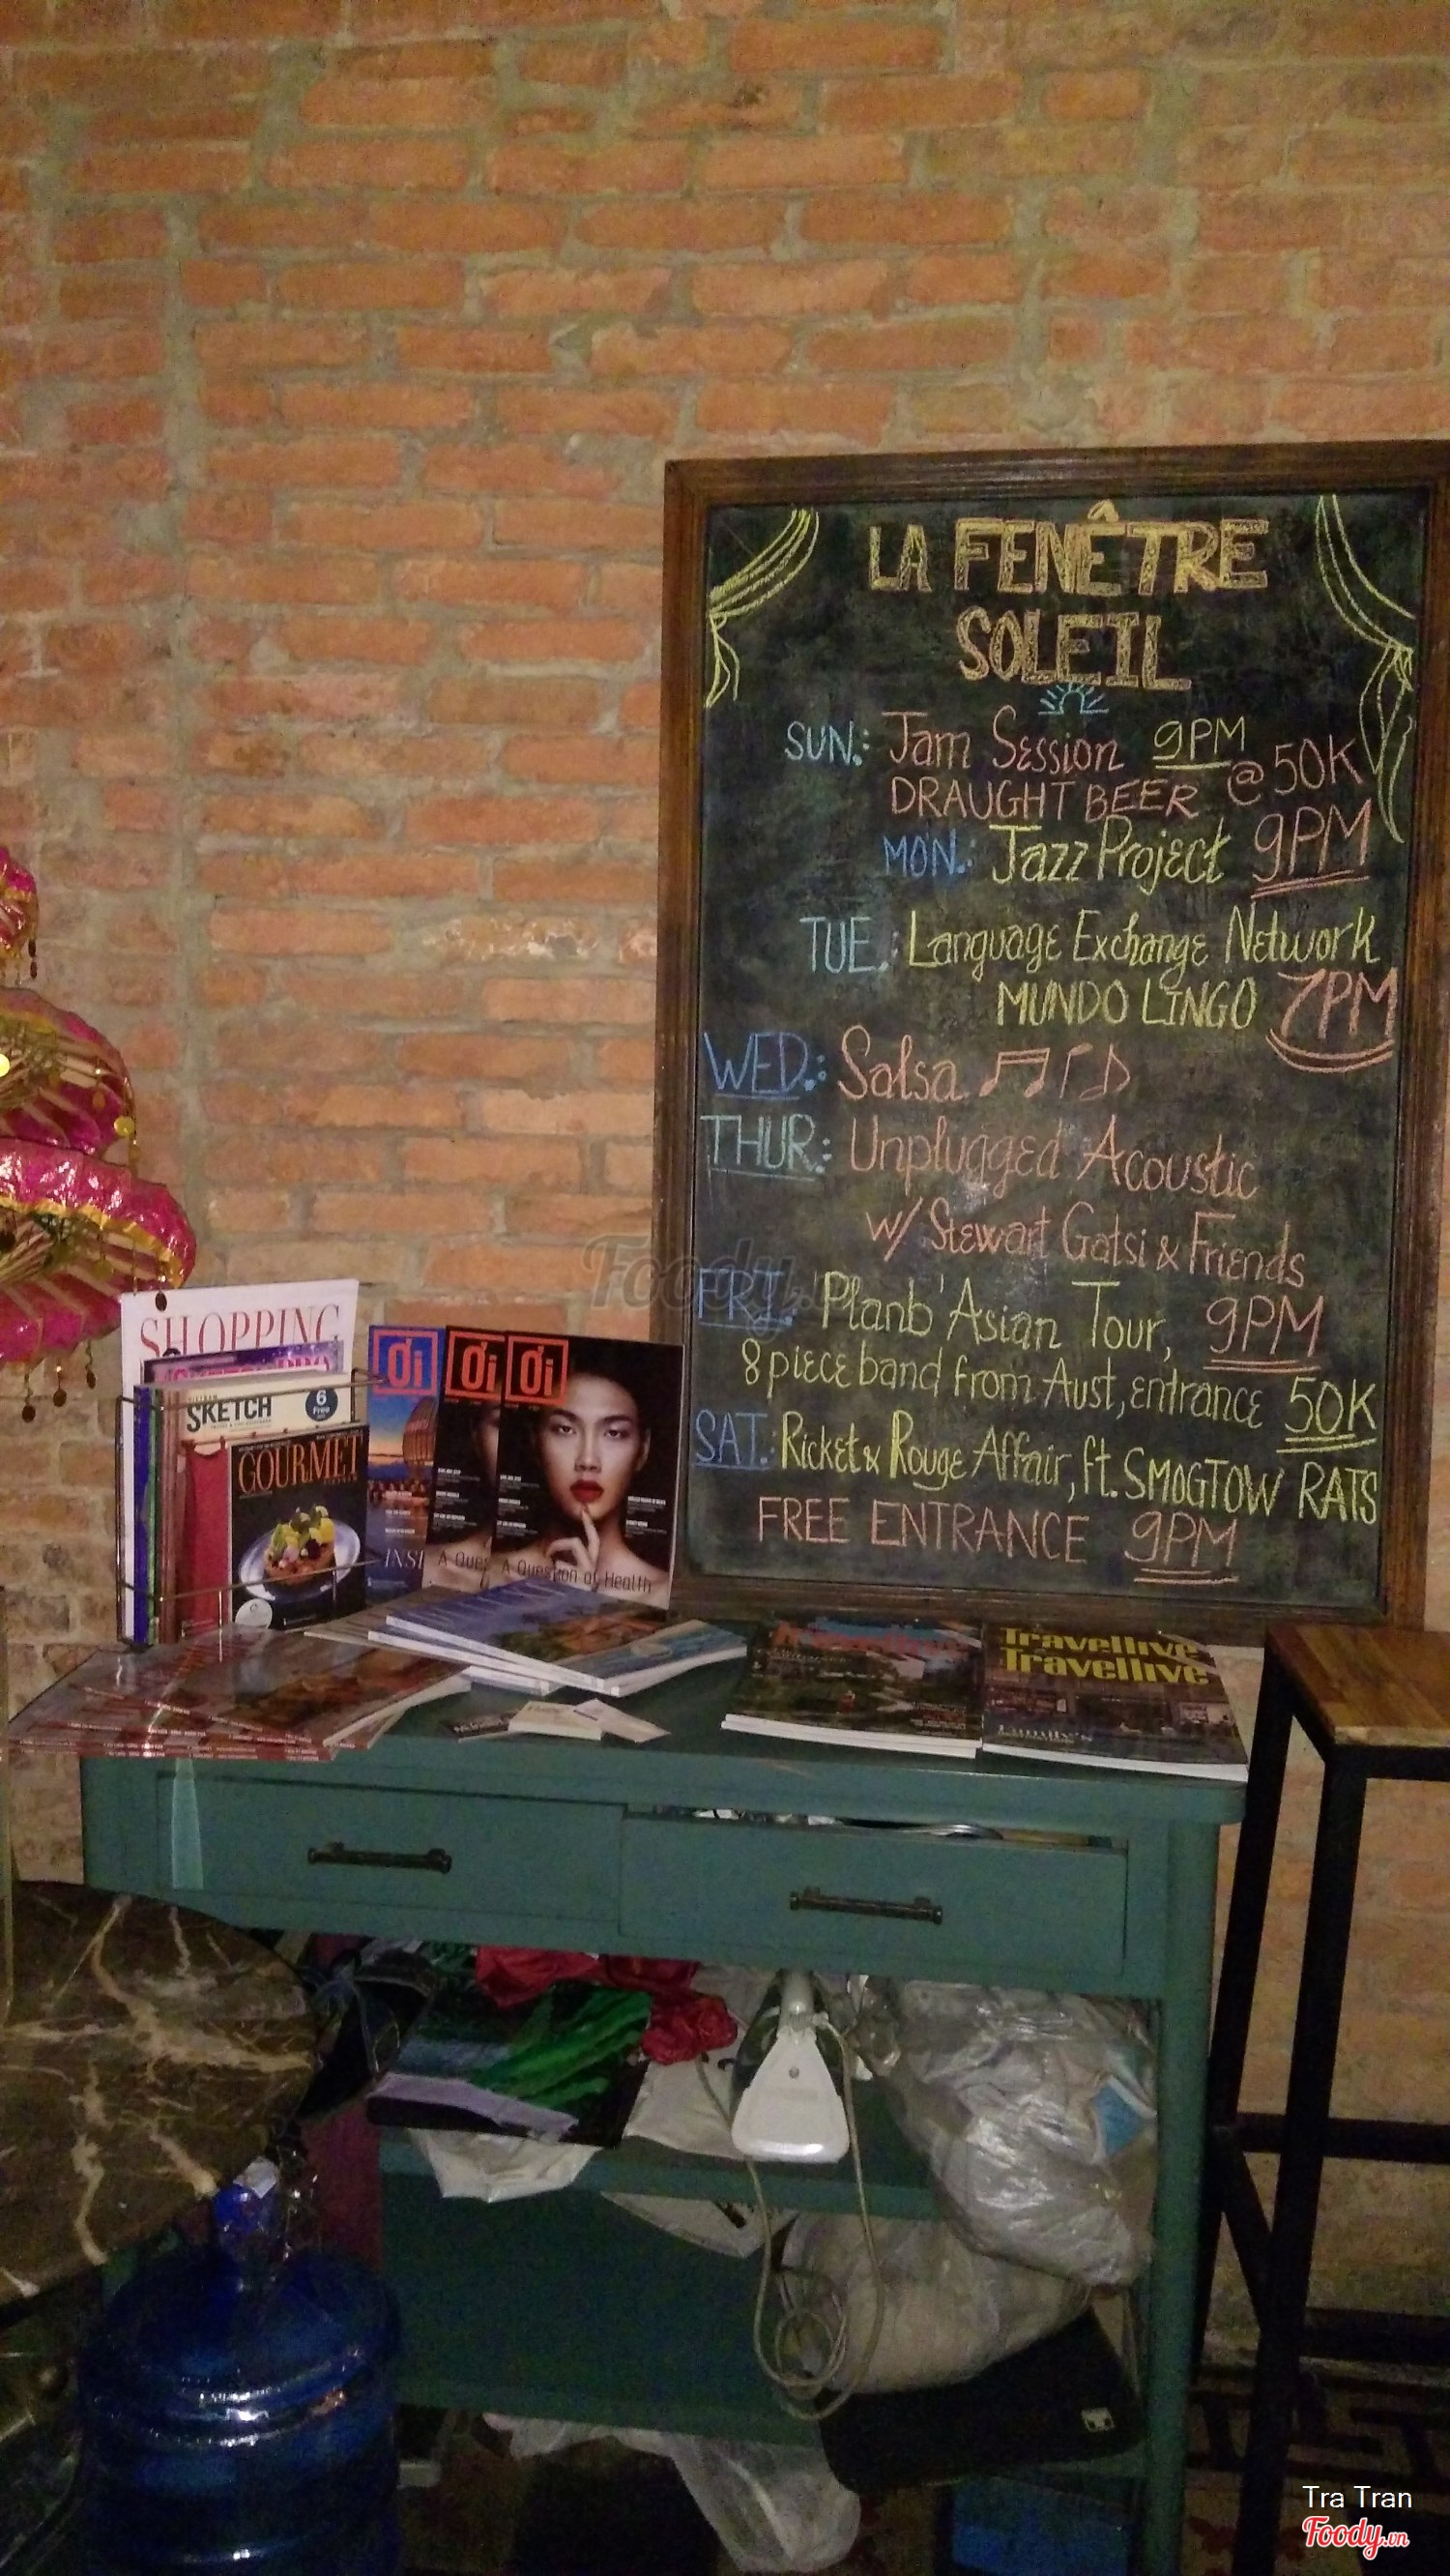 LA FENÊTRE
SOLEIL
SUN.: Jam Session 9PM
DRAUGHT BEER @ 50K
MON.: Jazz Project 9PM
TUE.: Language Exchange Network
MUNDO LINGO 7PM
WED.: Salsa
THUR.: Unplugged Acoustic
w/ Stewart Gatsi & Friends
FRI.: 'Planb' Asian Tour, 9PM
8 piece band from Aust, entrance 50K
SAT.: Ricket & Rouge Affair, ft. SMOGTOW RATS
FREE ENTRANCE 9PM
Foody
SHOPPING
SKETCH
6
Free
GOURMET
ơi
ơi
ơi
INSI
A Ques
A Question of Health
Travellive
Travellive
Family's
Tra Tran
Foody.vn